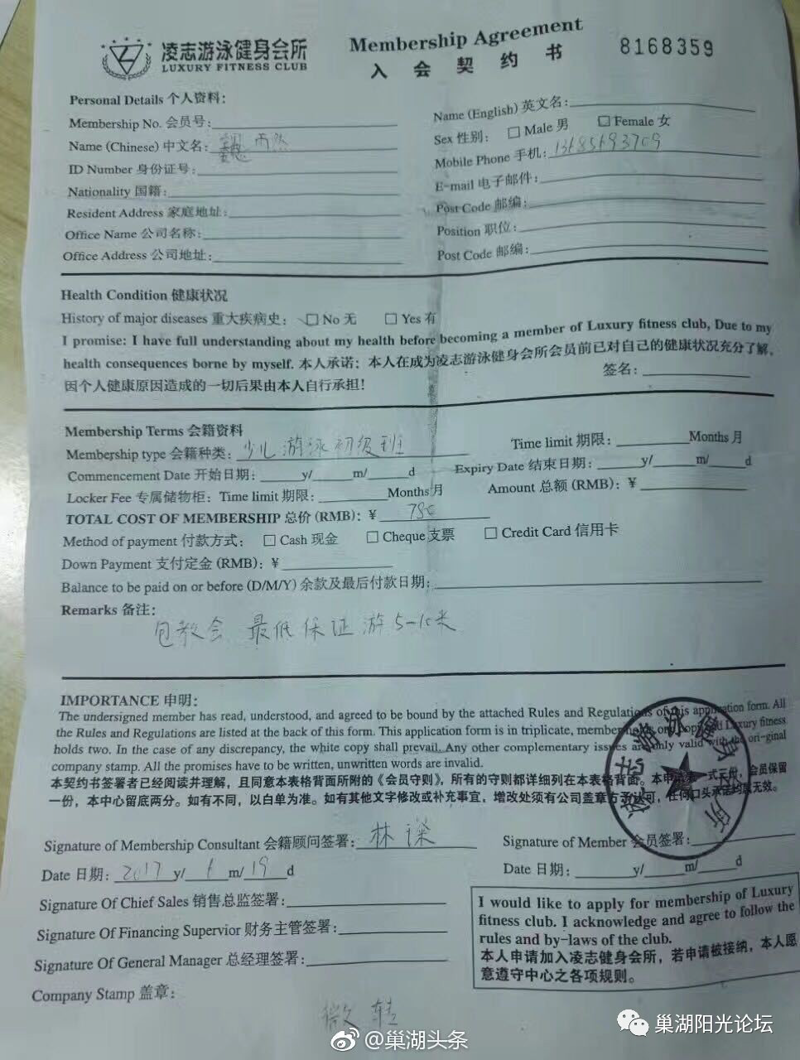 凌志游泳健身会所
LUXURY FITNESS CLUB
Membership Agreement
入会契约书
8168359
Personal Details 个人资料:
Membership No. 会员号:
Name (English) 英文名:
Name (Chinese) 中文名:
Sex 性别: □ Male 男 □ Female 女
ID Number 身份证号:
Mobile Phone 手机:
Nationality 国籍:
E-mail 电子邮件:
Resident Address 家庭地址:
Post Code 邮编:
Office Name 公司名称:
Position 职位:
Office Address 公司地址:
Post Code 邮编:
Health Condition 健康状况
History of major diseases 重大疾病史: □ No 无 □ Yes 有
I promise: I have full understanding about my health before becoming a member of Luxury fitness club, Due to my
health consequences borne by myself. 本人承诺: 本人在成为凌志游泳健身会所会员前已对自己的健康状况充分了解,
因个人健康原因造成的一切后果由本人自行承担!
签名:
Membership Terms 会籍资料
Membership type 会籍种类: 少儿游泳初级班
Time limit 期限: Months 月
Commencement Date 开始日期: y/ m/ d
Expiry Date 结束日期: y/ m/ d
Locker Fee 专属储物柜: Time limit 期限: Months 月
Amount 总额 (RMB): ¥
TOTAL COST OF MEMBERSHIP 总价 (RMB): ¥
Method of payment 付款方式: □ Cash 现金 □ Cheque 支票 □ Credit Card 信用卡
Down Payment 支付定金 (RMB): ¥
Balance to be paid on or before (D/M/Y) 余款及最后付款日期:
Remarks 备注:
包教会 最低保证游5-10米
IMPORTANCE 申明:
The undersigned member has read, understood, and agreed to be bound by the attached Rules and Regulations of this application form. All
the Rules and Regulations are listed at the back of this form. This application form is in triplicate, member holds one copy and Luxury fitness
holds two. In the case of any discrepancy, the white copy shall prevail. Any other complementary issues are only valid with the ori-ginal
company stamp. All the promises have to be written, unwritten words are invalid.
本契约书签署者已经阅读并理解, 且同意本表格背面所附的《会员守则》, 所有的守则都详细列在本表格背面。本申请表一式三份, 会员保留
一份, 本中心留底两份。如有不同, 以白单为准。如有其他文字修改或补充事宜, 增改处须有公司盖章方予认可, 任何口头承诺均属无效。
游泳健身会所
Signature of Membership Consultant 会籍顾问签署: 林
Signature of Member 会员签署:
Date 日期: 2017 y/ m/ 19 d
Date 日期: y/ m/ d
Signature Of Chief Sales 销售总监签署:
Signature Of Financing Supervior 财务主管签署:
Signature Of General Manager 总经理签署:
Company Stamp 盖章:
I would like to apply for membership of Luxury
fitness club. I acknowledge and agree to follow the
rules and by-laws of the club.
本人申请加入凌志健身会所, 若申请被接纳, 本人愿
意遵守中心之各项规则。
微转
@巢湖头条
巢湖阳光论坛